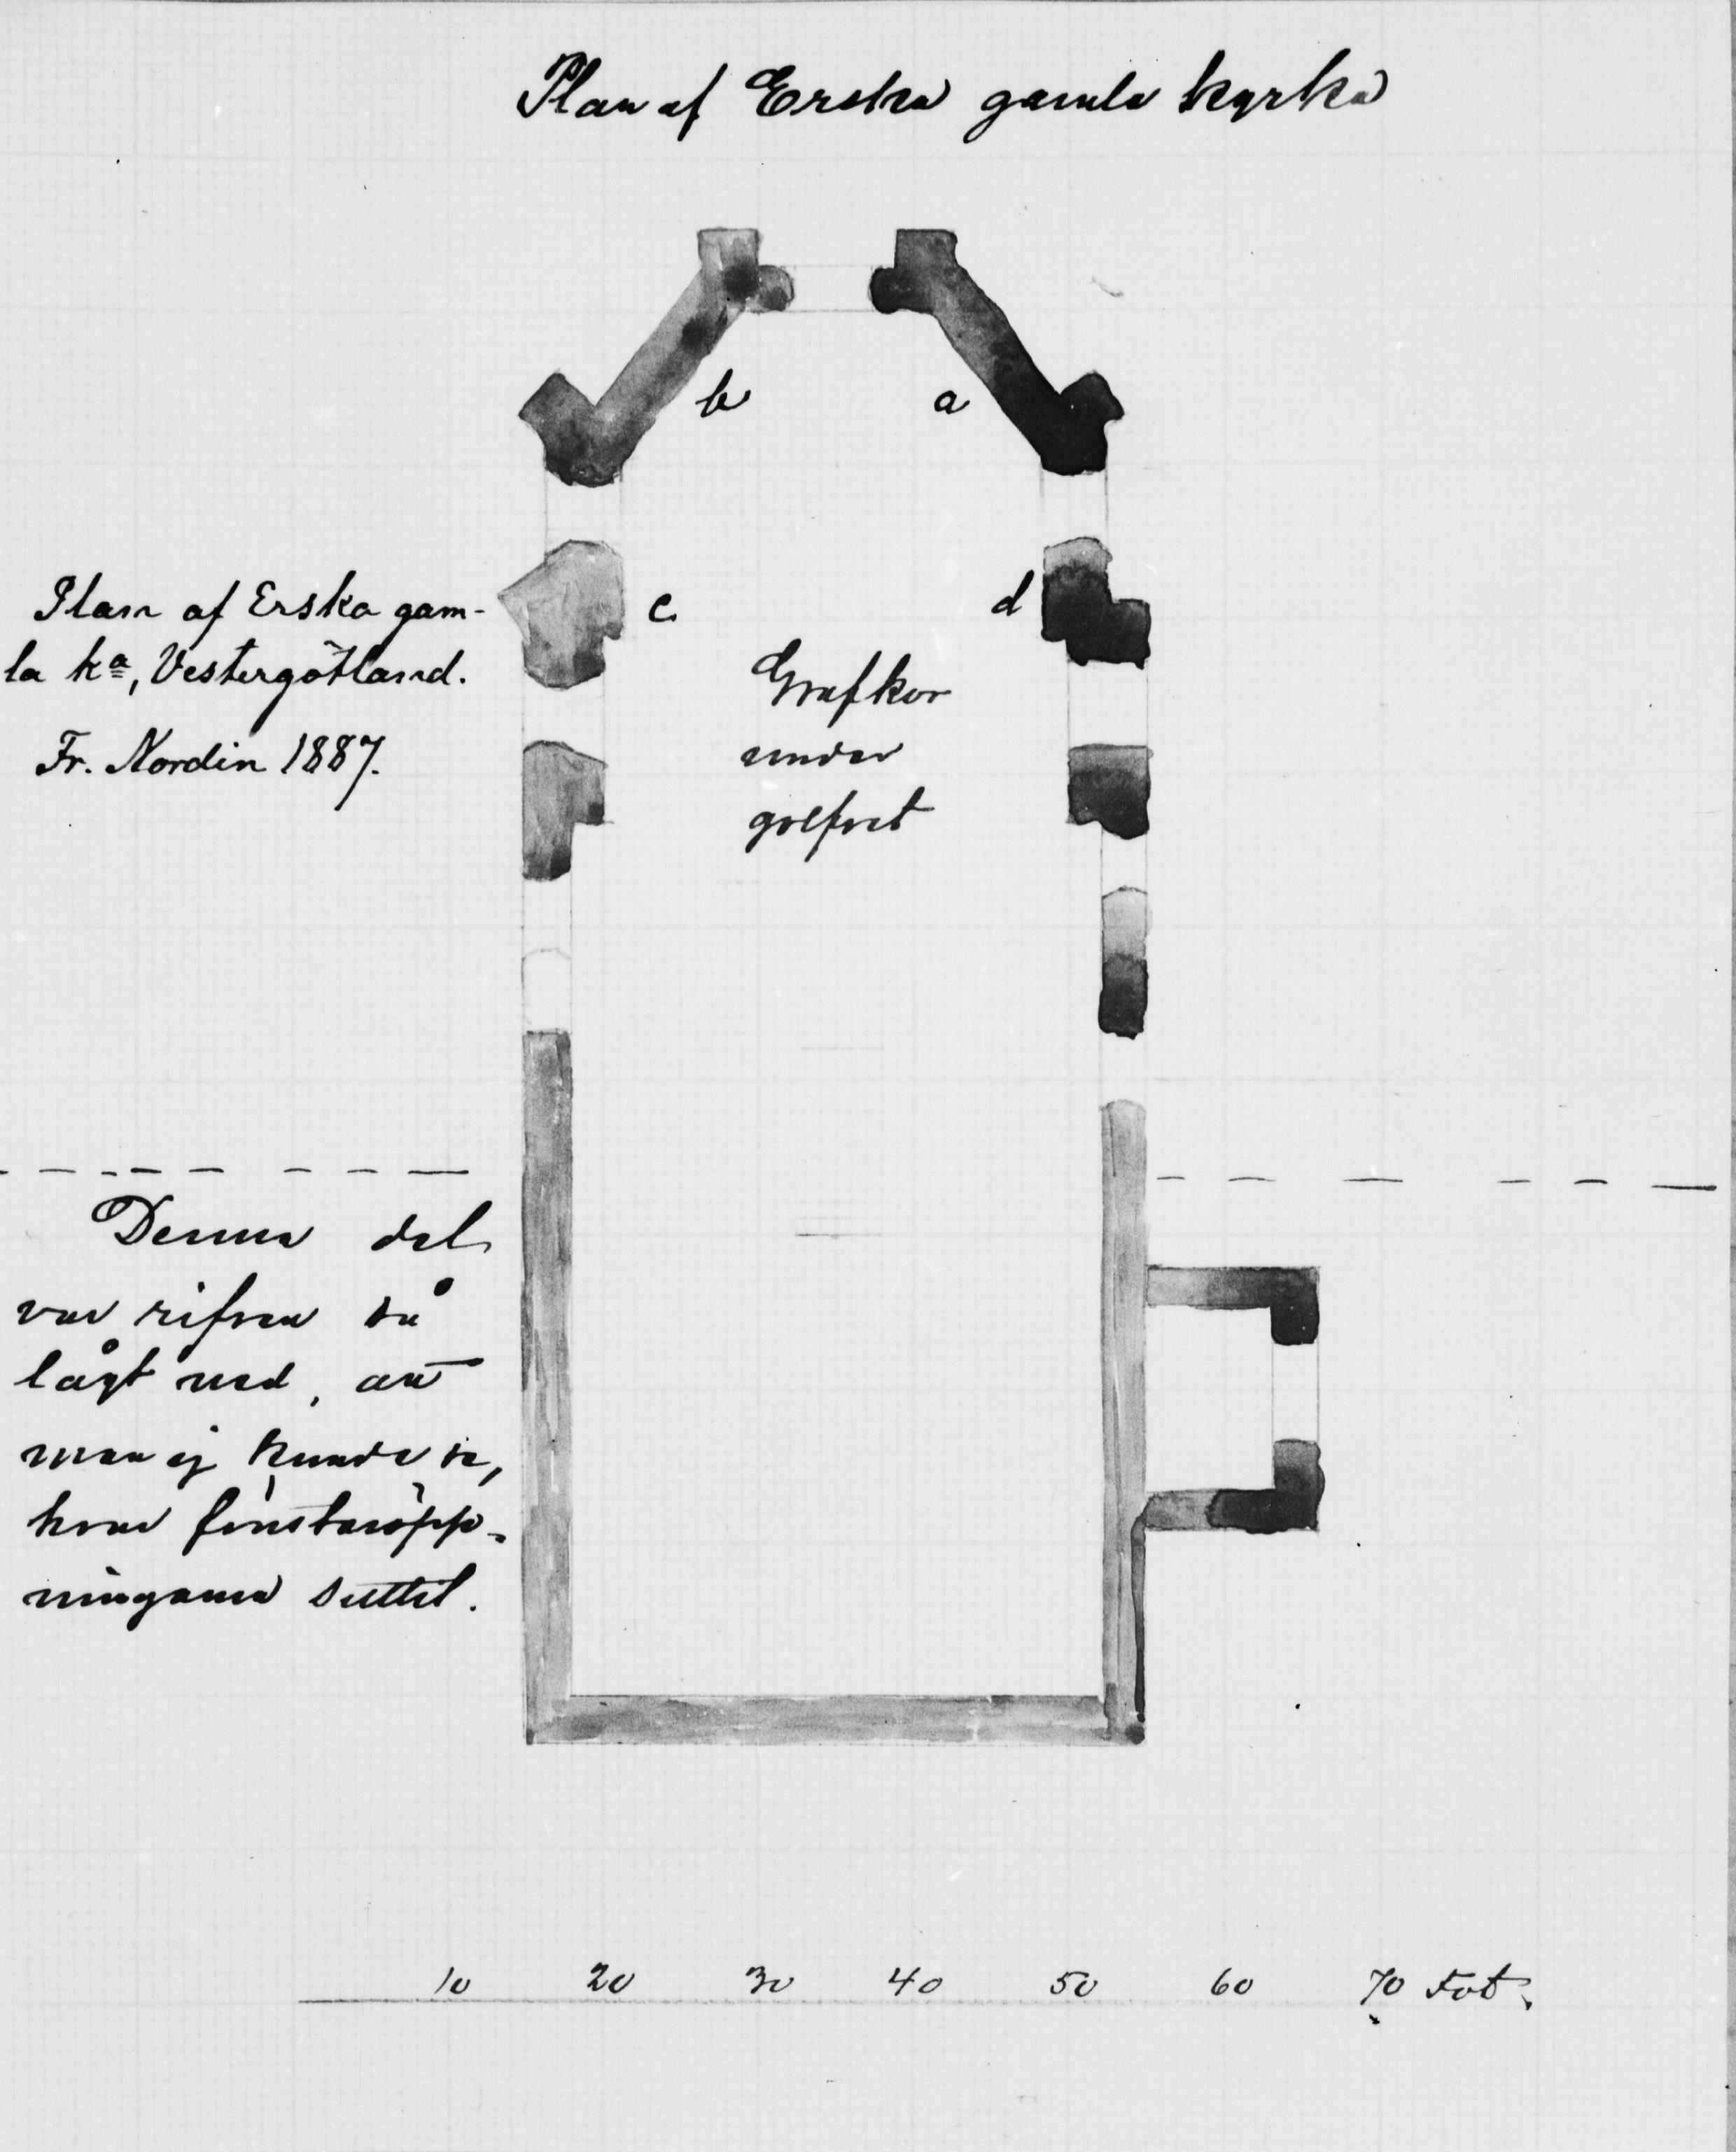 Plan af Erska gamla kyrka
b
a
Plan af Erska gam-
la kª, Vestergötland.
Fr. Nordin 1887.
c.
d
Grafkor
under
golfvet
Denna del
var rifven så
lågt ned, att
man ej kunde se,
hvar fönsteröpp-
ningarna suttit.
10 20 30 40 50 60 70 Fot.